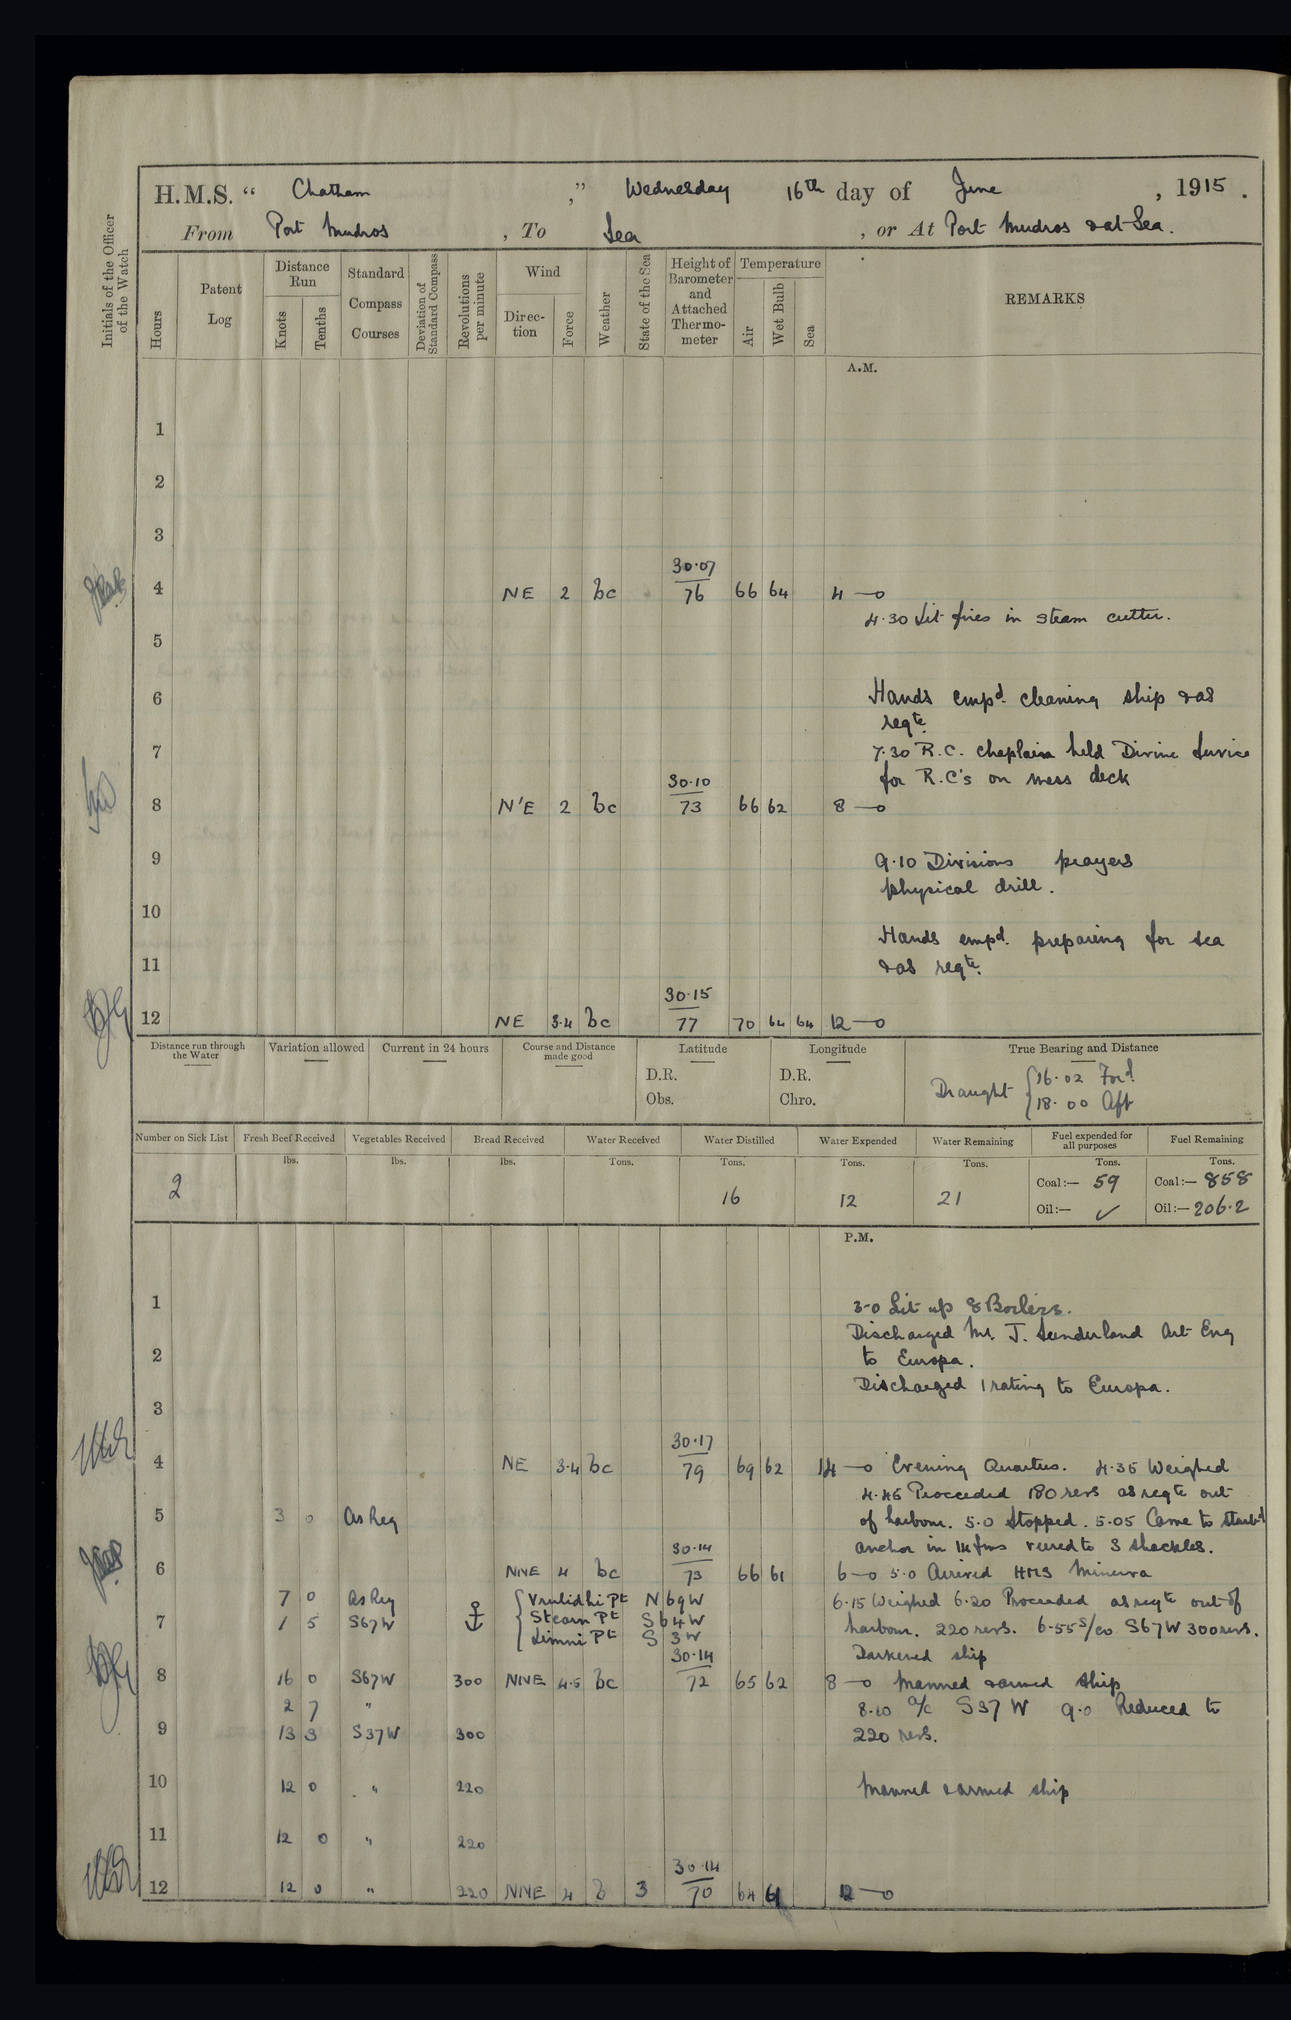 H.M.S. “ Chatham ,” Wednesday 16th day of June , 1915 .
From Port Mudros , To Sea , or At Port Mudros & at Sea.
Initials of the Officer of the Watch
Hours
Patent Log
Distance Run
Knots
Tenths
Standard Compass Courses
Deviation of Standard Compass
Revolutions per minute
Wind
Direction
Force
Weather
State of the Sea
Height of Barometer and Attached Thermometer
Temperature
Air
Wet Bulb
Sea
REMARKS
A.M.
1
2
3
30·07
4 NE 2 bc 76 66 64 4 —o
4·30 Lit fires in steam cutter.
5
6 Hands empd. cleaning ship & as
reqte.
7 7·30 R.C. Chaplain held Divine Service
30·10 for R.C's on mess deck
8 N'E 2 bc 73 66 62 8 —o
9 9·10 Divisions prayers
physical drill.
10
Hands empd. preparing for sea
11 & as reqte.
30·15
12 NE 3·4 bc 77 70 64 64 12 —o
Distance run through the Water
Variation allowed
Current in 24 hours
Course and Distance made good
Latitude
D.R.
Obs.
Longitude
D.R.
Chro.
True Bearing and Distance
Draught { 16·02 Ford
18·00 Aft
Number on Sick List
2
Fresh Beef Received
lbs.
Vegetables Received
lbs.
Bread Received
lbs.
Water Received
Tons.
Water Distilled
Tons.
16
Water Expended
Tons.
12
Water Remaining
Tons.
21
Fuel expended for all purposes
Tons.
Coal:— 59
Oil:— ✓
Fuel Remaining
Tons.
Coal:— 858
Oil:— 206·2
P.M.
1 3-0 Lit up 8 Boilers.
Discharged Mr. J. Sunderland Art Eng
2 to Europa.
Discharged 1 rating to Europa.
3
30·17
4 NE 3·4 bc 79 69 62 4 —o Evening Quarters. 4·35 Weighed
4·45 Proceeded 180 revs as reqte out
5 3 0 As Req of harbour. 5·0 Stopped. 5·05 Came to starbd
30·14 anchor in 14 fms veered to 3 shackles.
6 NNE 4 bc 73 66 61 6 —o 5·0 Arrived HMS Minerva
7 0 As Req { Vrulidhi Pt N 69 W 6·15 Weighed 6·20 Proceeded as reqte out of
7 1 5 S67W Stearn Pt S 64 W harbour. 220 revs. 6·55 s/co S67W 300 revs.
Limni Pt S 3 W
30·14 Darkened ship
8 16 0 S67W 300 NNE 4·5 bc 72 65 62 8 —o Manned & armed ship
2 7 " 8·10 a/c S37W 9·0 Reduced to
9 13 3 S37W 300 220 revs.
10 12 0 " 220 Manned & armed ship
11 12 0 " 220
30·14
12 12 0 " 220 NNE 4 b 3 70 64 61 12 —o